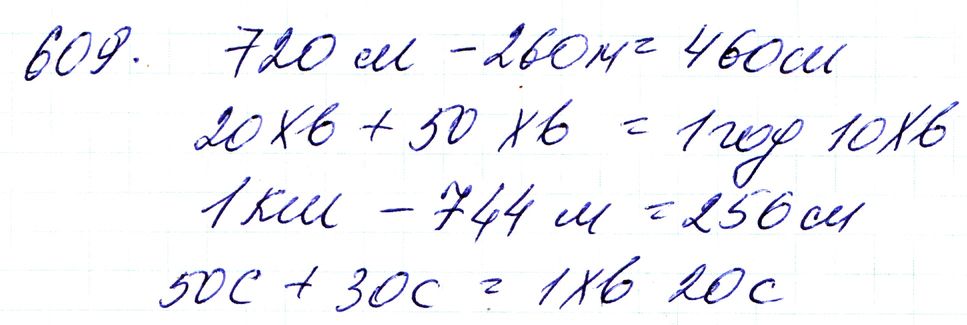 609. 720 м - 260 м = 460 м
20 хв + 50 хв = 1 год 10 хв
1 км - 744 м = 256 м
50 с + 30 с = 1 хв 20 с